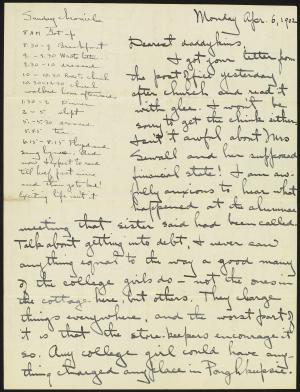 Sunday chronicle
8 A.M Got up
8.30-9 Breakfast
9-9.30 Wrote letter
9.30-10 dressed
10-10.30 Read & church
10.30-12.30 church
walked home afterwards
1.30-2 Dinner
2-5 slept
5-5.30 dressed
5.45 tea
6.15-8.15 Played and
sang hymns. And
now I hope to read
till half past nine
and then go to bed!
Exciting life isn't it
Monday Apr. 6, 1902
Dearest daddykins,
I got your letter from
the post office yesterday
after church and read it
with glee. I won't be
sorry to get the chink either.
Isn't it awful about Mrs
Sewall and her supposed
financial state! I am aw-
fully anxious to hear what
happened at the alumnae
meeting that sister said had been called.
Talk about getting into debt, I never saw
anything equal to the way a good many
of the college girls do - not the ones in
the cottage here, but others. They charge
things everywhere, and the worst part of
it is that the store-keepers encourage it
so. Any college girl could have any-
thing charged any place in Poughkeepsie.